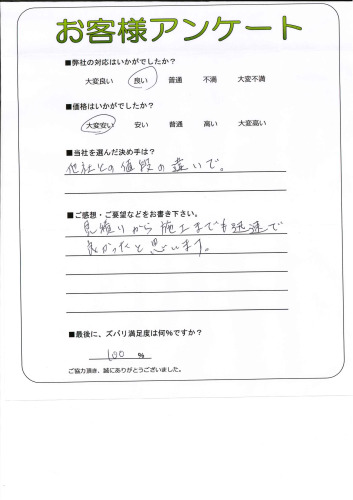 お客様アンケート
■弊社の対応はいかがでしたか？
大変良い 良い 普通 不満 大変不満
■価格はいかがでしたか？
大変安い 安い 普通 高い 大変高い
■当社を選んだ決め手は？
他社との値段の違いで。
■ご感想・ご要望などをお書き下さい。
見積りから施工までも迅速で
良かったと思います。
■最後に、ズバリ満足度は何％ですか？
100 %
ご協力頂き、誠にありがとうございました。